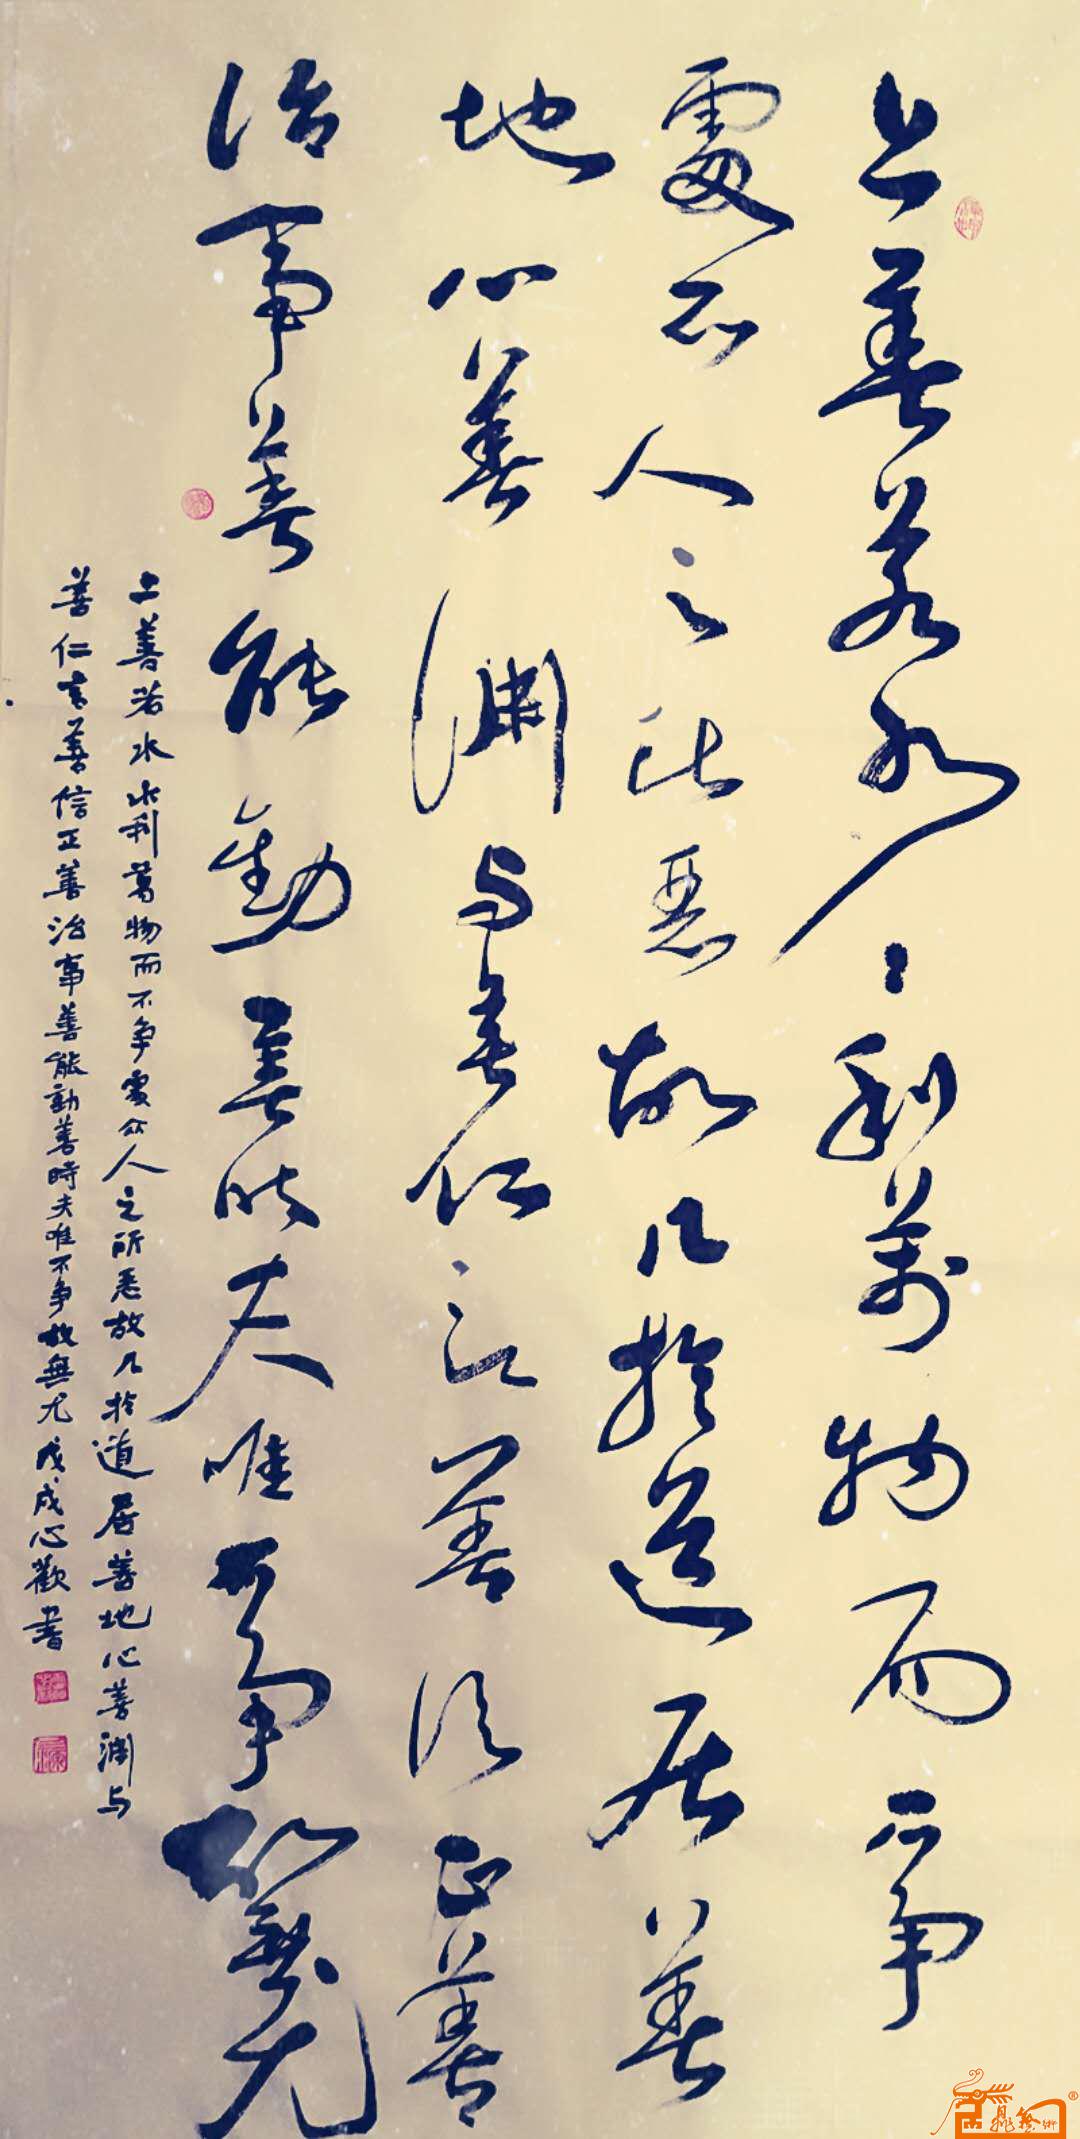 上善若水〻利萬物而不争
處众人之所惡故几於道居善
地心善渊与善仁言善信正善
治事善能動善时夫唯不争故無尤
上善若水水利萬物而不争處众人之所惡故几於道居善地心善渊与
善仁言善信正善治事善能動善時夫唯不争故無尤戊戌心歡書